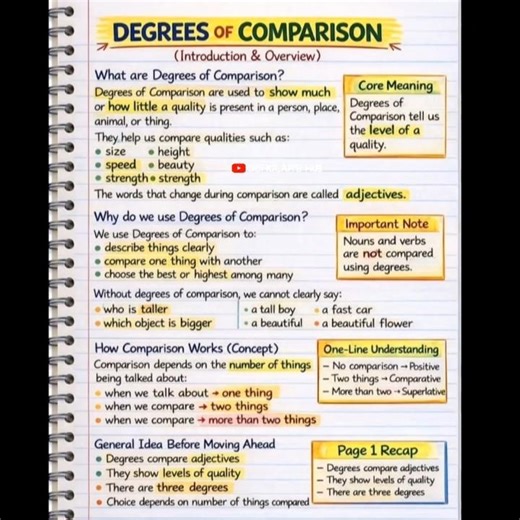 DEGREES OF COMPARISON
(Introduction & Overview)
What are Degrees of Comparison?
Degrees of Comparison are used to show much
or how little a quality is present in a person, place,
animal, or thing.
They help us compare qualities such as:
• size • height
• speed • beauty
• strength • strength
The words that change during comparison are called adjectives.
Core Meaning
Degrees of
Comparison tell us
the level of a
quality.
Why do we use Degrees of Comparison?
We use Degrees of Comparison to:
• describe things clearly
• compare one thing with another
• choose the best or highest among many
Important Note
Nouns and verbs
are not compared
using degrees.
Without degrees of comparison, we cannot clearly say:
• who is taller • a tall boy • a fast car
• which object is bigger • a beautiful • a beautiful flower
How Comparison Works (Concept)
Comparison depends on the number of things
being talked about:
• when we talk about → one thing
• when we compare → two things
• when we compare → more than two things
One-Line Understanding
– No comparison → Positive
– Two things → Comparative
– More than two → Superlative
General Idea Before Moving Ahead
• Degrees compare adjectives
• They show levels of quality
• There are three degrees
• Choice depends on number of things compared
Page 1 Recap
– Degrees compare adjectives
– They show levels of quality
– There are three degrees